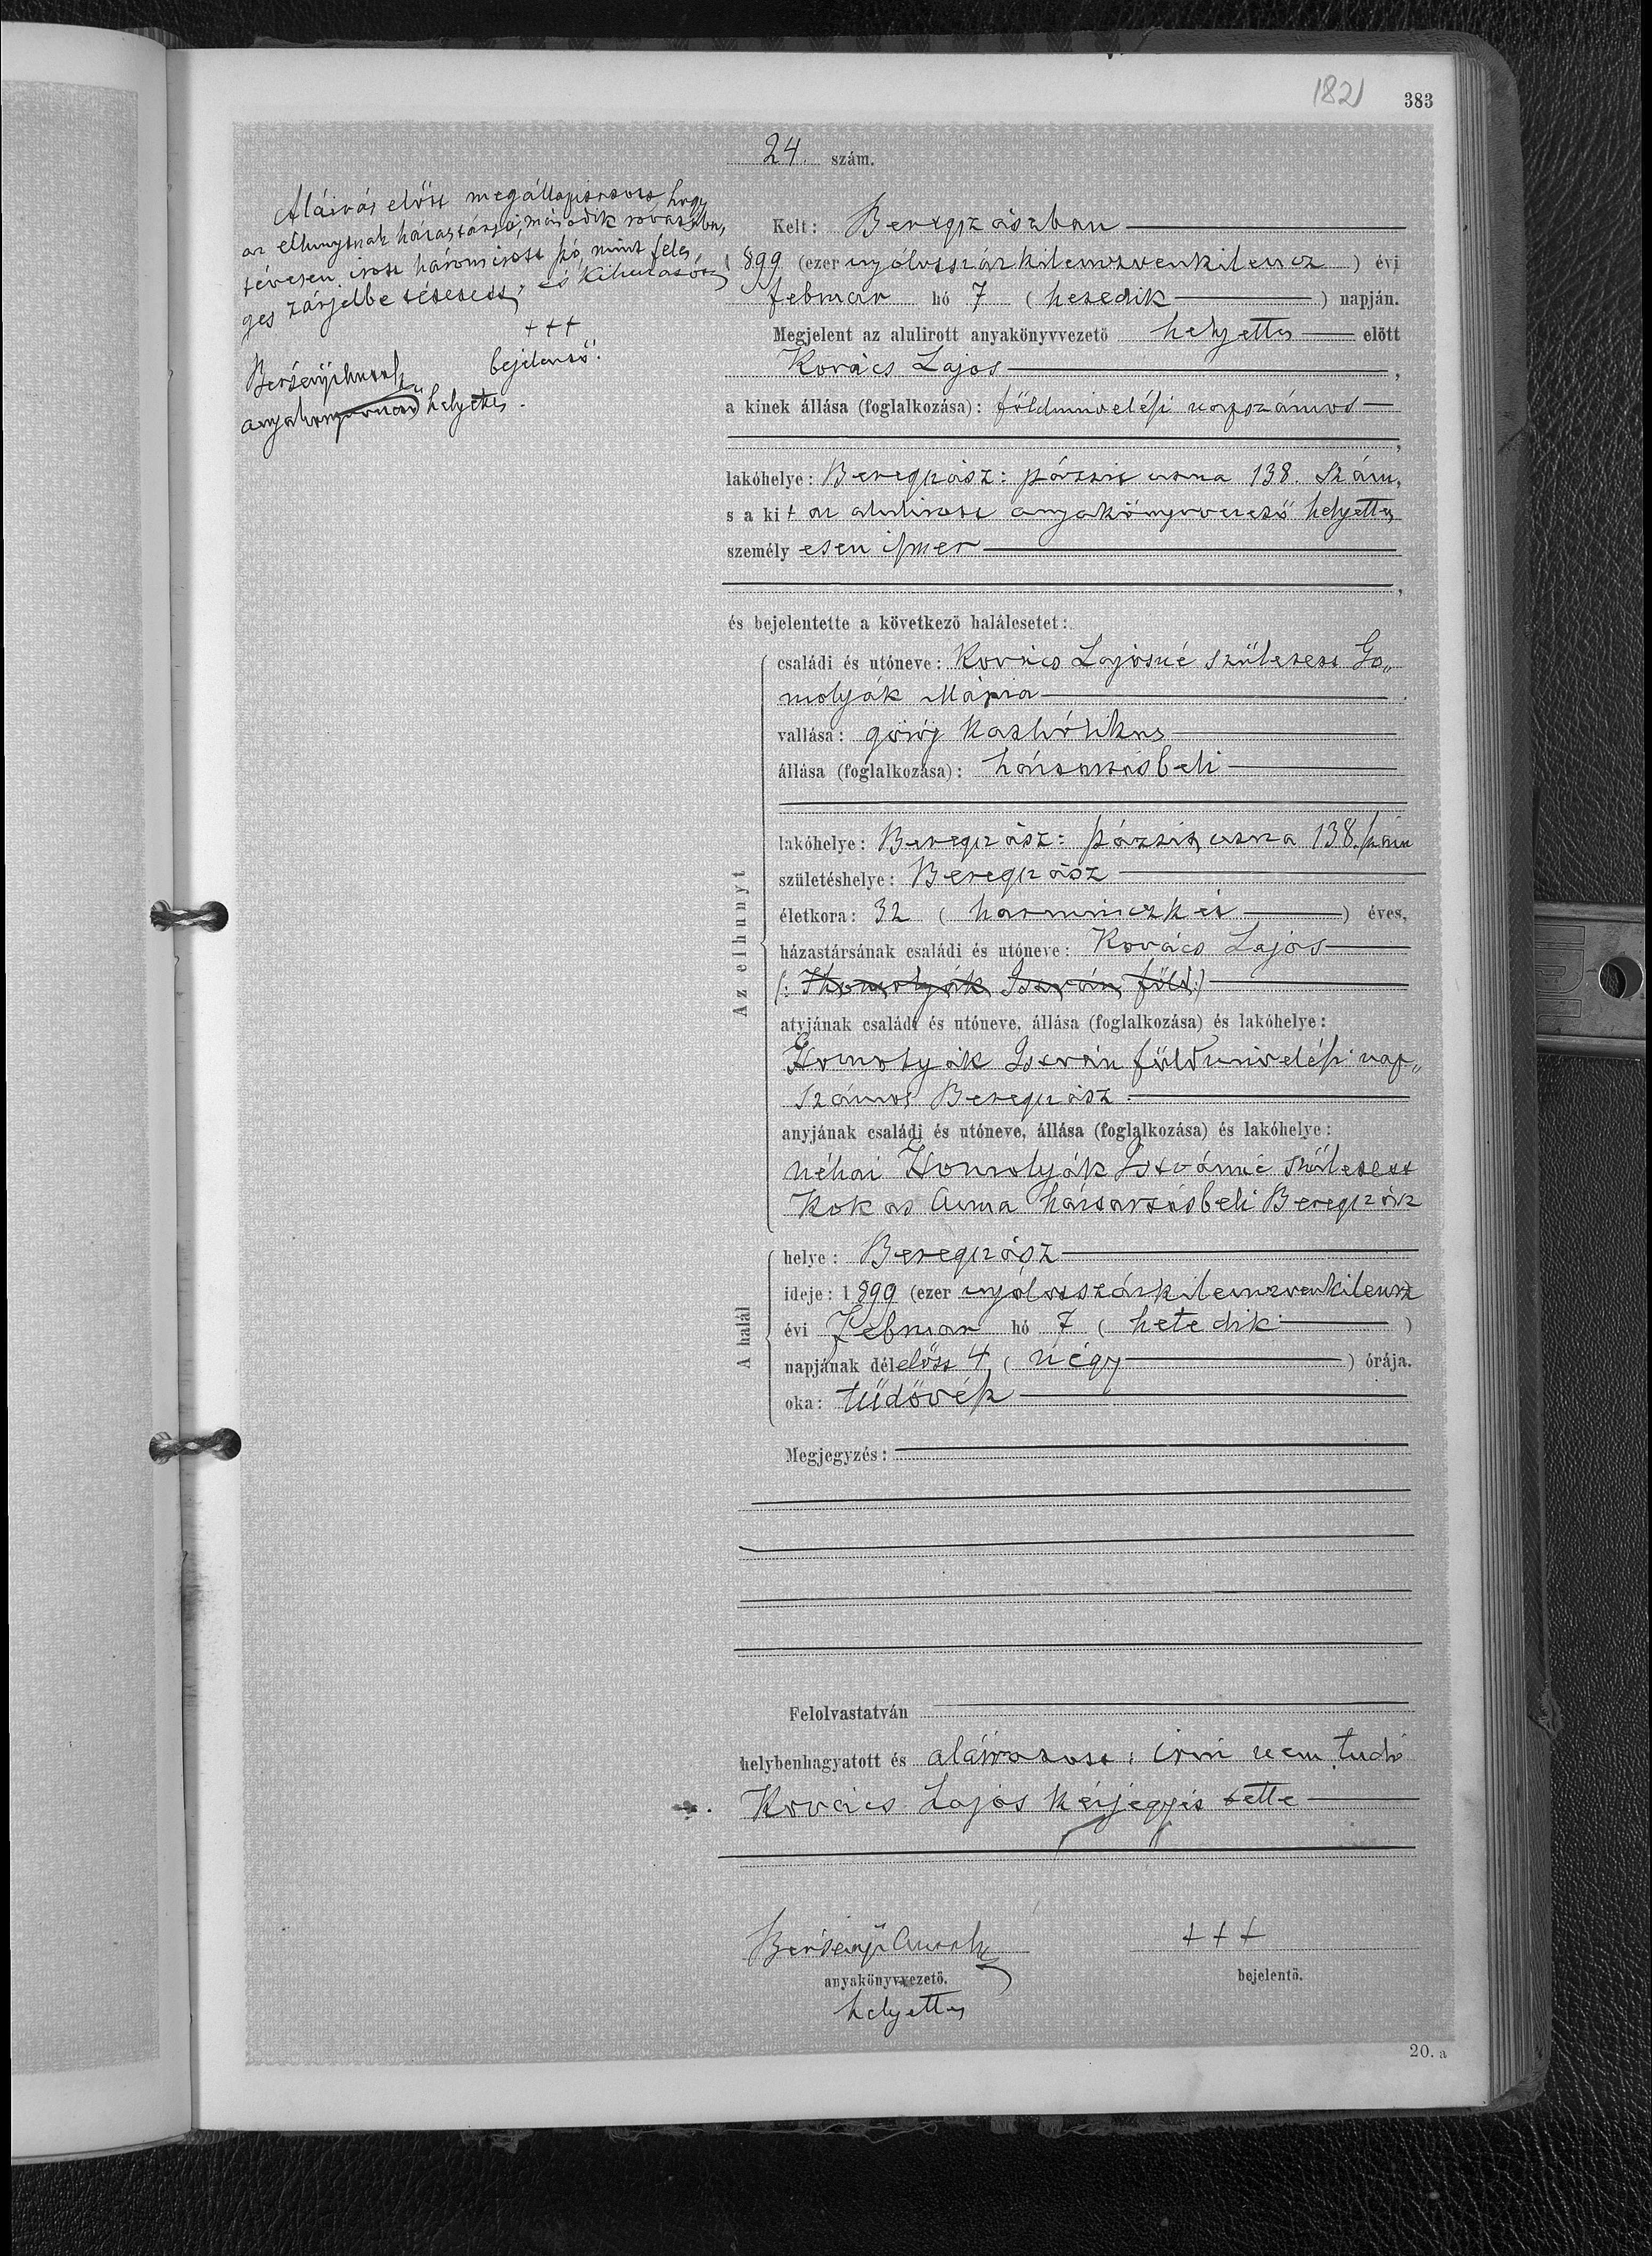 1821
383
24. szám.
Aláirás előtt megállapittatott, hogy
az elhunytnak házastársa, második rovatában,
tévesen irott három irott szó, mint feles,
ges zárjelbe tétetett, és kihuzatott
+++
bejelentő.
Bersenyi
anyakönyvvezető helyettes.
Kelt: Beregszászban
1899 (ezer nyólcsszázkilenczvenkilencz) évi
februar hó 7 (hetedik) napján.
Megjelent az alulirott anyakönyvvezető helyettes előtt
Kovács Lajos,
a kinek állása (foglalkozása): földmivelési napszámos
,
lakóhelye: Beregszász: pázsit utcza 138. szám,
s a kit az alulirott anyakönyvvezető helyettes
személyesen ismer
,
és bejelentette a következő halálesetet:
Az elhunyt
családi és utóneve: Kovács Lajosné született Go„
molyák Mária.
vallása: görög katholikus
állása (foglalkozása): háztartásbeli
lakóhelye: Beregszász: pázsit utcza 138. szám
születéshelye: Beregszász
életkora: 32 (harminczkét) éves,
házastársának családi és utóneve: Kovács Lajos
(: Homolyák István föld:)
atyjának családi és utóneve, állása (foglalkozása) és lakóhelye:
Homolyák István földmivelési nap„
számos Beregszász
anyjának családi és utóneve, állása (foglalkozása) és lakóhelye:
néhai Homolyák Istvánné született
Kokas Anna háztartásbeli Beregszász
A halál
helye: Beregszász
ideje: 1899 (ezer nyólcsszázkilenczvenkilencz
évi Februar hó 7 (hetedik)
napjának délelőtt 4 (négy) órája.
oka: tüdővész
Megjegyzés:
Felolvastatván
helybenhagyatott és aláiratott: irni nem tudó
Kovács Lajos kézjegyét tette
Bersenyi
+++
anyakönyvvezető.
bejelentő.
helyettes
20. a